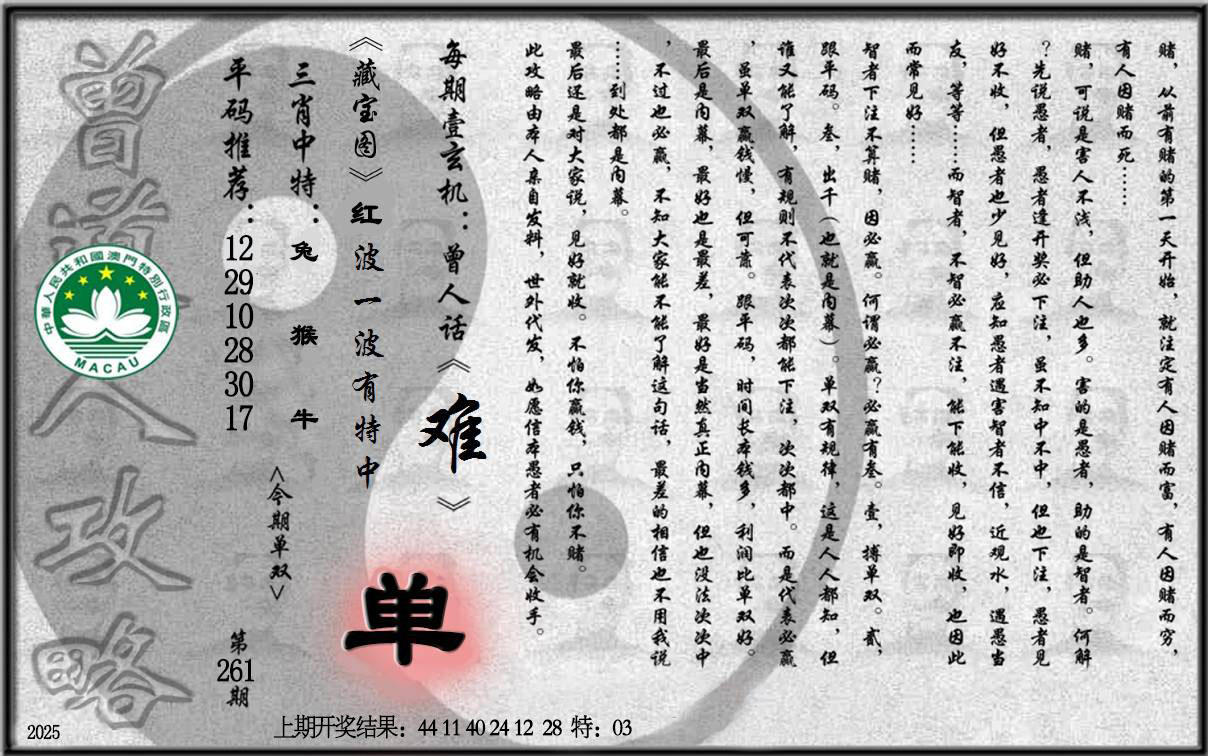 赌，从前有赌的第一天开始，就注定有人因赌而富，有人因赌而穷，
有人因赌而死……
赌，可说是害人不浅，但助人也多。害的是愚者，助的是智者。何解
？先说愚者，愚者逢开奖必下注，虽不知中不中，但也下注，愚者见
好不收，但愚者也少见好，应知愚者遇害智者不信，近观水，遇愚当
友，等等……而智者，不智必赢不注，能下能收，见好即收，也因此
而常见好……
智者下注不算赌，因必赢。何谓必赢？必赢有叁。壹，搏单双。贰，
跟平码。叁，出千（也就是内幕）。单双有规律，这是人人都知，但
谁又能了解，有规则不代表次次都能下注，次次都中。而是代表必赢
，虽单双赢钱慢，但可靠。跟平码，时间长本钱多，利润比单双好。
最后是内幕，最好也是最差，最好是当然真正内幕，但也没法次次中
，不过也必赢，不知大家能不能了解这句话，最差的相信也不用我说
……到处都是内幕。
最后还是对大家说，见好就收。不怕你赢钱，只怕你不赌。
此攻略由本人亲自发料，世外代发，如愿信本愚者必有机会收手。
每期壹玄机：曾人话《难》
《藏宝图》红波一波有特中
单
三肖中特：兔 猴 牛
<今期单双>
平码推荐：12 29 10 28 30 17
第261期
曾道人攻略
中華人民共和國澳門特別行政區
MACAU
2025
上期开奖结果：44 11 40 24 12 28 特：03